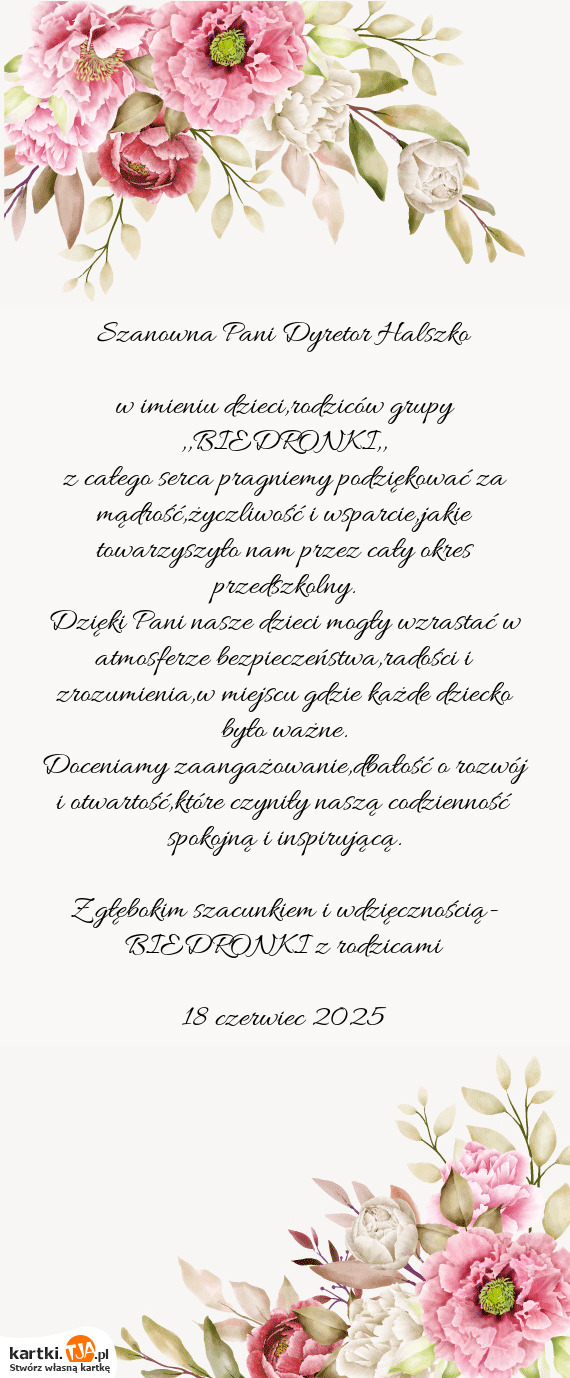 Szanowna Pani Dyretor Halszko
w imieniu dzieci,rodziców grupy
,,BIEDRONKI,,
z całego serca pragniemy podziękować za
mądrość,życzliwość i wsparcie,jakie
towarzyszyło nam przez cały okres
przedszkolny.
Dzięki Pani nasze dzieci mogły wzrastać w
atmosferze bezpieczeństwa,radości i
zrozumienia,w miejscu gdzie każde dziecko
było ważne.
Doceniamy zaangażowanie,dbałość o rozwój
i otwartość,które czyniły naszą codzienność
spokojną i inspirującą.
Z głębokim szacunkiem i wdzięcznością-
BIEDRONKI z rodzicami
18 czerwiec 2025
kartki.TJA.pl
Stwórz własną kartkę